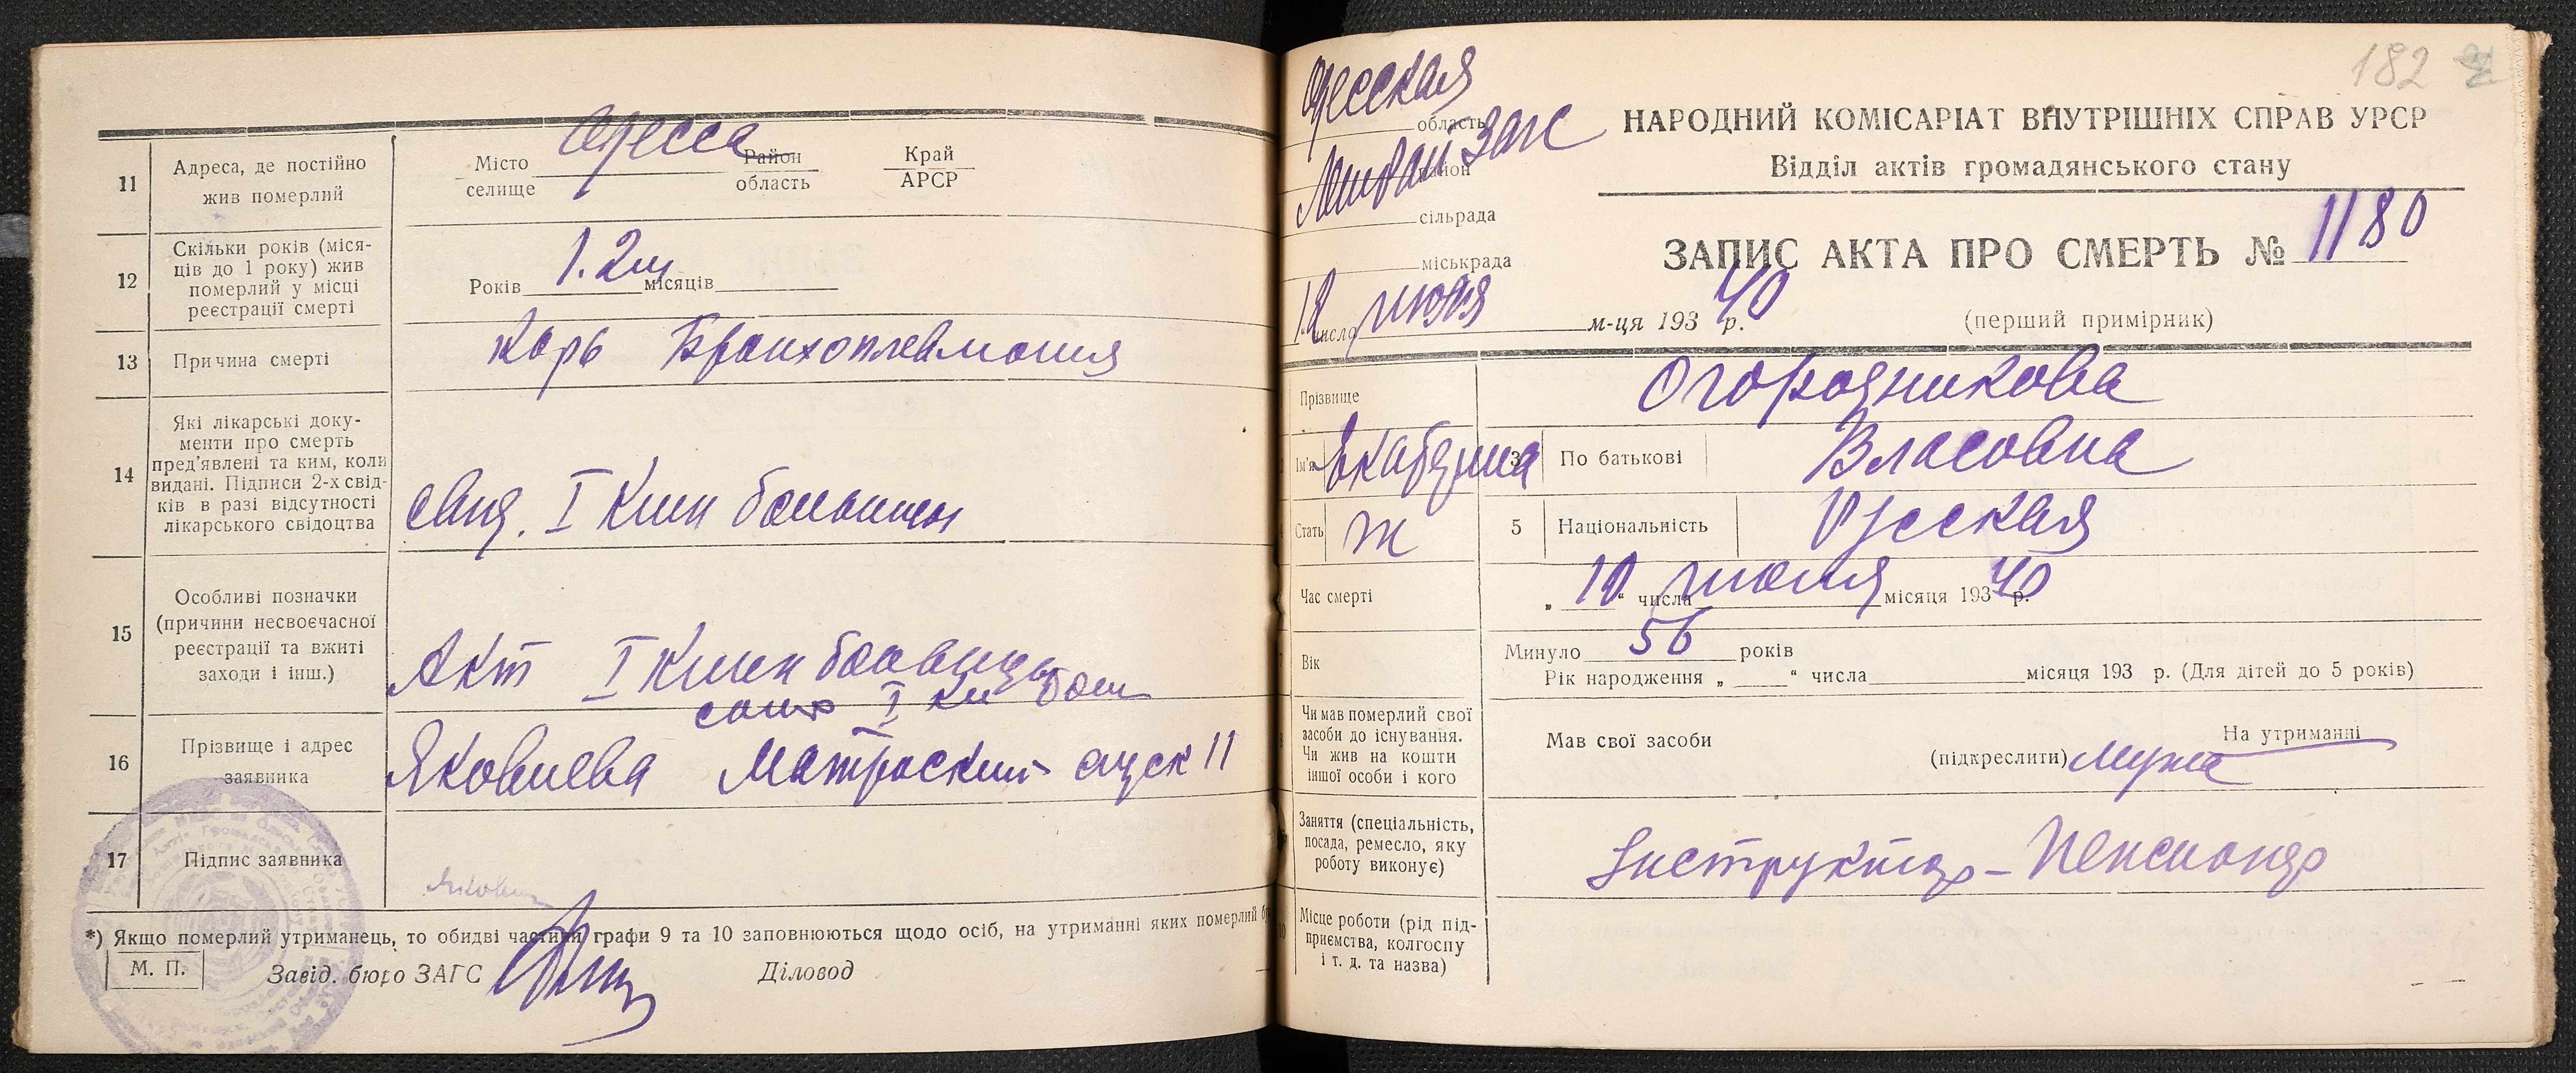 11
Адреса, де постійно
жив померлий
Місто
селище
Одесса
Район
область
Край
АРСР
12
Скільки років (міся-
ців до 1 року) жив
померлий у місці
реєстрації смерті
Років 1.2 м місяців
13
Причина смерті
Корь Бронхопневмония
14
Які лікарські доку-
менти про смерть
пред'явлені та ким, коли
видані. Підписи 2-х свід-
ків в разі відсутності
лікарського свідоцтва
свид. I Клин больницы
15
Особливі позначки
(причини несвоєчасної
реєстрації та вжиті
заходи і інш.)
Акт I Клин больницы
I Кл бол
16
Прізвище і адрес
заявника
Яковлева Матроский спуск 11
17
Підпис заявника
*) Якщо померлий утриманець, то обидві частини графи 9 та 10 заповнюються щодо осіб, на утриманні яких померлий
М. П.
Завід. бюро ЗАГС
Діловод
182
Одесская
область
ЗАГС
район
сільрада
міськрада
число июля м-ця 193 40 р.
НАРОДНИЙ КОМІСАРІАТ ВНУТРІШНІХ СПРАВ УРСР
Відділ актів громадянського стану
ЗАПИС АКТА ПРО СМЕРТЬ № 1180
(перший примірник)
Прізвище
Огородникова
Ім'я
3
По батькові
Власовна
Стать
ж
5
Національність
Русская
Час смерті
„ 10 “ числа июля місяця 193 40 р.
Вік
Минуло 56 років
Рік народження „ “ числа місяця 193 р. (Для дітей до 5 років)
Чи мав померлий свої
засоби до існування.
Чи жив на кошти
іншої особи і кого
Мав свої засоби
(підкреслити)
На утриманні
мужа
Заняття (спеціальність,
посада, ремесло, яку
роботу виконує)
Інструктор - Пенсионер
Місце роботи (рід під-
приємства, колгоспу
і т. д. та назва)